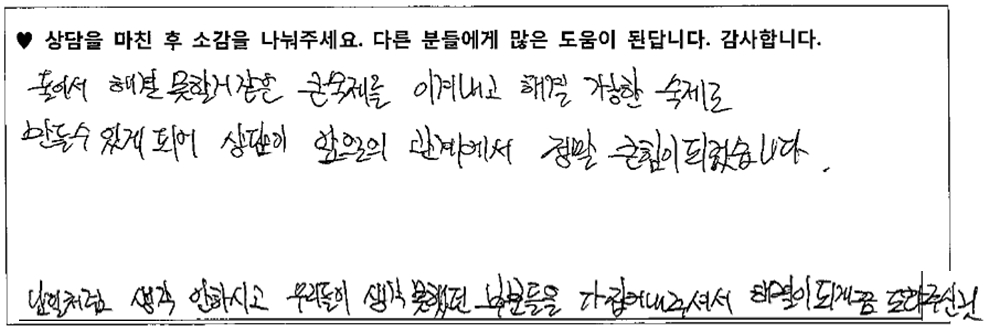 ♥ 상담을 마친 후 소감을 나눠주세요. 다른 분들에게 많은 도움이 된답니다. 감사합니다.
둘이서 해결 못할거같은 큰숙제를 이겨내고 해결 가능한 숙제로
만들수 있게 되어 상담이 앞으로의 관계에서 정말 큰힘이되렀습니다.
남일처럼 생각 안하시고 우리들이 생각 못했던 부분들을 다 집어내주셔서 해결이 되게끔 도와주신것